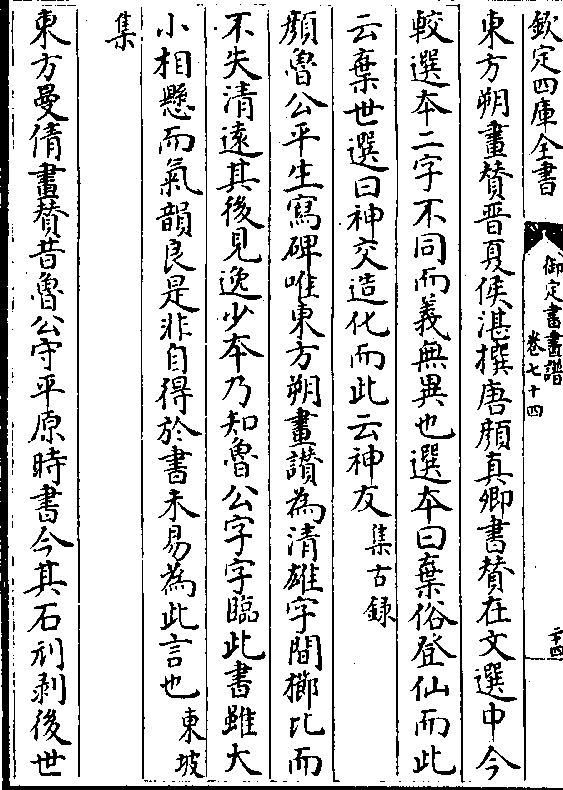 欽定四庫全書
御定書畫譜
卷七十四
二十四
東方朔畫賛晋夏侯湛撰唐顔真卿書賛在文選中今
較選本二字不同而義無異也選本曰棄俗登仙而此
云棄世選曰神交造化而此云神友集古録
顔魯公平生寫碑唯東方朔畫讃為清雄字間櫛比而
不失清遠其後見逸少本乃知魯公字字臨此書雖大
小相懸而氣韻良是非自得於書未易為此言也東坡
集
東方曼倩畫賛昔魯公守平原時書今其石刓剥後世